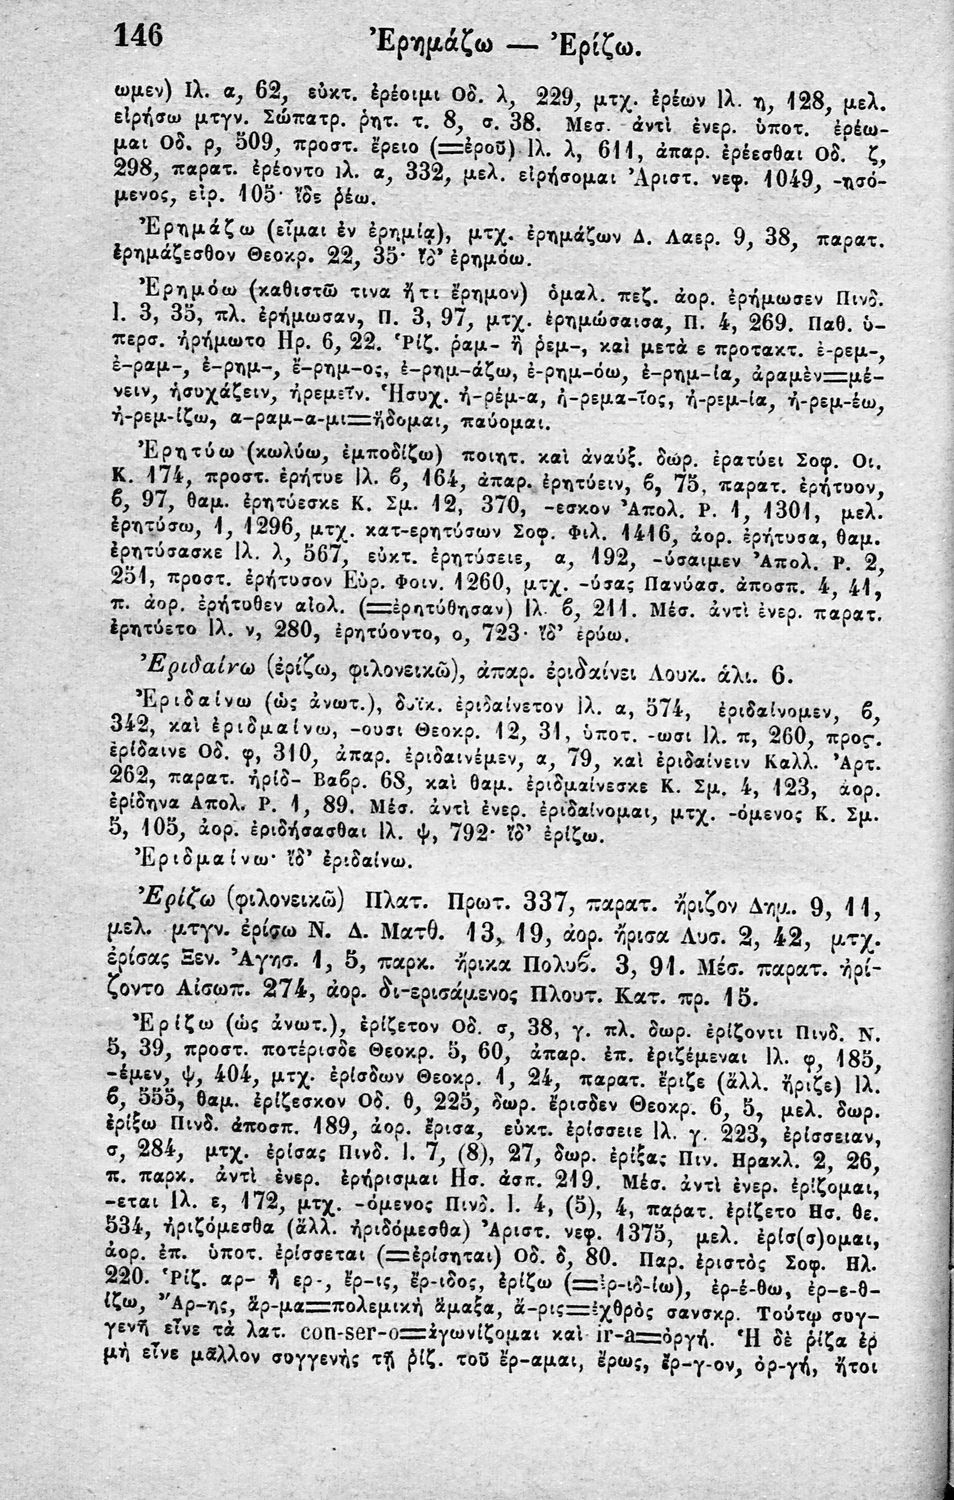 146
Ἐρημάζω — Ἐρίζω.
ωμεν) Ιλ. α, 62, εὐκτ. ἐρέοιμι Οδ. λ, 229, μτχ. ἐρέων Ιλ. η, 128, μελ.
εἰρήσω μτγν. Σώπατρ. ῥητ. τ. 8, σ. 38. Μεσ. ἀντὶ ἐνερ. ὑποτ. ἐρέω-
μαι Οδ. ρ, 509, προστ. ἔρειο (=ἐροῦ) Ιλ. λ, 611, ἀπαρ. ἐρέεσθαι Οδ. ζ,
298, παρατ. ἐρέοντο Ιλ. α, 332, μελ. εἰρήσομαι Ἀριστ. νεφ. 1049, -ησό-
μενος, εἰρ. 105· ἴδε ῥέω.
Ἐρημάζω (εἶμαι ἐν ἐρημίᾳ), μτχ. ἐρημάζων Δ. Λαερ. 9, 38, παρατ.
ἐρημάζεσθον Θεοκρ. 22, 35· ἴδ' ἐρημόω.
Ἐρημόω (καθιστῶ τινα ἤ τι ἔρημον) ὁμαλ. πεζ. ἀορ. ἐρήμωσεν Πινδ.
Ι. 3, 35, πλ. ἐρήμωσαν, Π. 3, 97, μτχ. ἐρημώσαισα, Π. 4, 269. Παθ. ὑ-
περσ. ἠρήμωτο Ηρ. 6, 22. Ῥίζ. ῥαμ- ἢ ῥεμ-, καὶ μετὰ ε προτακτ. ἐ-ρεμ-,
ἐ-ραμ-, ἐ-ρημ-, ἔ-ρημ-ος, ἐ-ρημ-άζω, ἐ-ρημ-όω, ἐ-ρημ-ία, ἀραμὲν=μέ-
νειν, ἡσυχάζειν, ἠρεμεῖν. Ἡσυχ. ἠ-ρέμ-α, ἠ-ρεμα-ῖος, ἠ-ρεμ-ία, ἠ-ρεμ-έω,
ἠ-ρεμ-ίζω, α-ραμ-α-μι=ἥδομαι, παύομαι.
Ἐρητύω (κωλύω, ἐμποδίζω) ποιητ. καὶ ἀναύξ. δωρ. ἐρατύει Σοφ. Οι.
Κ. 174, προστ. ἐρήτυε Ιλ. ϐ, 164, ἀπαρ. ἐρητύειν, ϐ, 75, παρατ. ἐρήτυον,
ϐ, 97, θαμ. ἐρητύεσκε Κ. Σμ. 12, 370, -εσκον Ἀπολ. Ρ. 1, 1301, μελ.
ἐρητύσω, 1, 1296, μτχ. κατ-ερητύσων Σοφ. Φιλ. 1416, ἀορ. ἐρήτυσα, θαμ.
ἐρητύσασκε Ιλ. λ, 567, εὐκτ. ἐρητύσειε, α, 192, -ύσαιμεν Ἀπολ. Ρ. 2,
251, προστ. ἐρήτυσον Εὐρ. Φοιν. 1260, μτχ. -ύσας Πανύασ. ἀποσπ. 4, 41,
π. ἀορ. ἐρήτυθεν αἰολ. (=ἐρητύθησαν) Ιλ. ϐ, 211. Μέσ. ἀντὶ ἐνερ. παρατ.
ἐρητύετο Ιλ. ν, 280, ἐρητύοντο, ο, 723· ἴδ' ἐρύω.
Ἐριδαίνω (ἐρίζω, φιλονεικῶ), ἀπαρ. ἐριδαίνει Λουκ. ἁλι. 6.
Ἐριδαίνω (ὡς ἀνωτ.), δυϊκ. ἐριδαίνετον Ιλ. α, 574, ἐριδαίνομεν, ϐ,
342, καὶ ἐριδμαίνω, -ουσι Θεοκρ. 12, 31, ὑποτ. -ωσι Ιλ. π, 260, προς.
ἐρίδαινε Οδ. φ, 310, ἀπαρ. ἐριδαινέμεν, α, 79, καὶ ἐριδαίνειν Καλλ. Ἀρτ.
262, παρατ. ἠρίδ- Βαϐρ. 68, καὶ θαμ. ἐριδμαίνεσκε Κ. Σμ. 4, 123, ἀορ.
ἐρίδηνα Απολ. Ρ. 1, 89. Μέσ. ἀντὶ ἐνερ. ἐριδαίνομαι, μτχ. -όμενος Κ. Σμ.
5, 105, ἀορ. ἐριδήσασθαι Ιλ. ψ, 792· ἴδ' ἐρίζω.
Ἐριδμαίνω· ἴδ' ἐριδαίνω.
Ἐρίζω (φιλονεικῶ) Πλατ. Πρωτ. 337, παρατ. ἤριζον Δημ. 9, 11,
μελ. μτγν. ἐρίσω Ν. Δ. Ματθ. 13, 19, ἀορ. ἤρισα Λυσ. 2, 42, μτχ.
ἐρίσας Ξεν. Ἀγησ. 1, 5, παρκ. ἤρικα Πολυϐ. 3, 91. Μέσ. παρατ. ἠρί-
ζοντο Αἰσωπ. 274, ἀορ. δι-ερισάμενος Πλουτ. Κατ. πρ. 15.
Ἐρίζω (ὡς ἀνωτ.), ἐρίζετον Οδ. σ, 38, γ. πλ. δωρ. ἐρίζοντι Πινδ. Ν.
5, 39, προστ. ποτέρισδε Θεοκρ. 5, 60, ἀπαρ. ἐπ. ἐριζέμεναι Ιλ. φ, 185,
-έμεν, ψ, 404, μτχ. ἐρίσδων Θεοκρ. 1, 24, παρατ. ἔριζε (ἄλλ. ἤριζε) Ιλ.
ϐ, 555, θαμ. ἐρίζεσκον Οδ. θ, 225, δωρ. ἔρισδεν Θεοκρ. 6, 5, μελ. δωρ.
ἐρίξω Πινδ. ἀποσπ. 189, ἀορ. ἔρισα, εὐκτ. ἐρίσσειε Ιλ. γ. 223, ἐρίσσειαν,
σ, 284, μτχ. ἐρίσας Πινδ. Ι. 7, (8), 27, δωρ. ἐρίξας Πιν. Ηρακλ. 2, 26,
π. παρκ. ἀντὶ ἐνερ. ἐρήρισμαι Ησ. ἀσπ. 219. Μέσ. ἀντὶ ἐνερ. ἐρίζομαι,
-εται Ιλ. ε, 172, μτχ. -όμενος Πινδ. Ι. 4, (5), 4, παρατ. ἐρίζετο Ησ. θε.
534, ἠριζόμεσθα (ἄλλ. ἠριδόμεσθα) Ἀριστ. νεφ. 1375, μελ. ἐρίσ(σ)ομαι,
ἀορ. ἐπ. ὑποτ. ἐρίσσεται (=ἐρίσηται) Οδ. δ, 80. Παρ. ἐριστὸς Σοφ. Ηλ.
220. Ῥίζ. αρ- ἢ ερ-, ἔρ-ις, ἔρ-ιδος, ἐρίζω (=ἐρ-ιδ-ίω), ἐρ-έ-θω, ἐρ-ε-θ-
ίζω, Ἄρ-ης, ἅρ-μα=πολεμικὴ ἅμαξα, ἄ-ρις=ἐχθρὸς σανσκρ. Τούτῳ συγ-
γενῆ εἶνε τὰ λατ. con-ser-o=ἀγωνίζομαι καὶ ir-a=ὀργή. Ἡ δὲ ῥίζα ἐρ
μὴ εἶνε μᾶλλον συγγενὴς τῇ ῥίζ. τοῦ ἔρ-αμαι, ἔρως, ἔρ-γ-ον, ὀρ-γή, ἤτοι